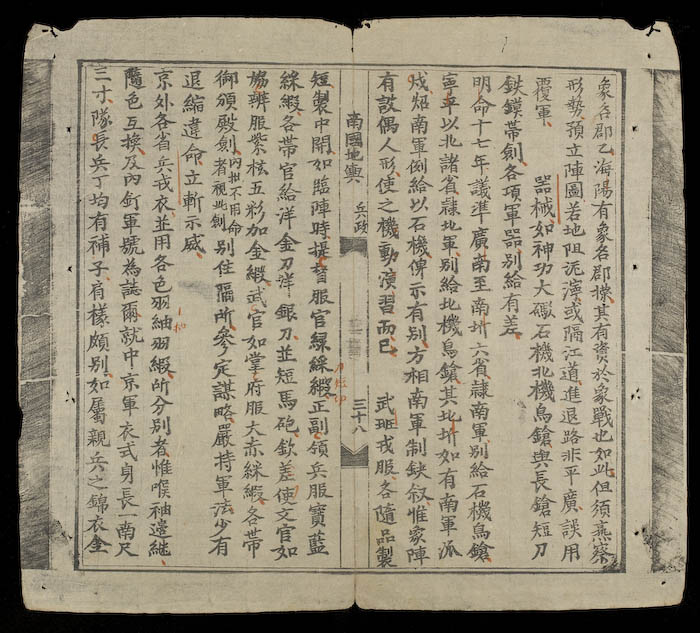 象名郡乙海陽有象名郡㨿其有資於象戰也如此但須熹察
形勢預立陣圖若地阻泥濘或隔江道進退路非平廣誤用
覆軍 器械如神功大礮石機北機鳥鎗與長鎗短刀
鉄鏷帶劍各項軍器別給有差
明命十七年議準廣南至南圻六省隷南軍別給石機鳥鎗
寧平以北諸省隷北軍別給北機鳥鎗其北圻如有南軍派
戍炤南軍例給以石機俾示有別方相南軍制缺叙惟象陣
有設偶人形使之機動演習而已 武班戎服各隨品製
南國地輿 兵政 三十八
短製中開如臨陣時提督服官綠綵緞正副領兵服寶藍
綵緞各帶官給洋金刀洋銀刀並短馬砲欽差使文官如
協辨服紫桂五彩加金緞武官如掌府服大赤綵緞各帶
御頒殿劍者視此劍內批不用命別住隔所參定謀略嚴持軍法少有
退縮違命立斬示威
京外各省兵戎衣並用各色羽紬羽緞所分別者惟喉袖邊繼
隨色互換及內釘軍號為誌爾就中京軍衣式身長一南尺
三寸隊長兵丁均有補子肩樣頗別如屬親兵之錦衣金